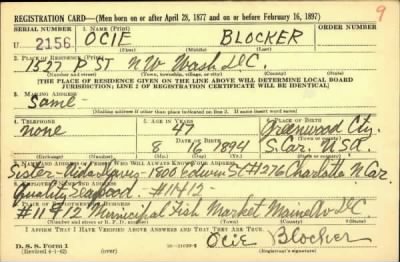 REGISTRATION CARD—(Men born on or after April 28, 1877 and on or before February 16, 1897)
9
SERIAL NUMBER
1. NAME (Print)
U 2156
OCIE BLOCKER
(First) (Middle) (Last)
2. PLACE OF RESIDENCE (Print)
1527 P ST NW Wash D.C.
(Number and street) (Town, township, village, or city) (County) (State)
[THE PLACE OF RESIDENCE GIVEN ON THE LINE ABOVE WILL DETERMINE LOCAL BOARD
JURISDICTION; LINE 2 OF REGISTRATION CERTIFICATE WILL BE IDENTICAL]
3. MAILING ADDRESS
Same
[Mailing address if other than place indicated on line 2. If same insert word same]
4. TELEPHONE
none
5. AGE IN YEARS
47
DATE OF BIRTH
8 16 1894
(Mo.) (Day) (Yr.)
6. PLACE OF BIRTH
Greenwood Cty.
(Town or county)
S. Car. U.S.A.
(State or country)
7. NAME AND ADDRESS OF PERSON WHO WILL ALWAYS KNOW YOUR ADDRESS
Sister- 1800 Edwin St #276 Charlotte N. Car
8. EMPLOYER'S NAME AND ADDRESS
Quality Seafood. #11+12-
9. PLACE OF EMPLOYMENT OR BUSINESS
#11 & 12 Municipal Fish Market Maine Av D.C.
(Number and street or R. F. D. number) (Town) (County) (State)
I AFFIRM THAT I HAVE VERIFIED ABOVE ANSWERS AND THAT THEY ARE TRUE.
Ocie Blocker
D. S. S. Form 1
(Revised 4-1-42) (over)
(Registrant's signature)